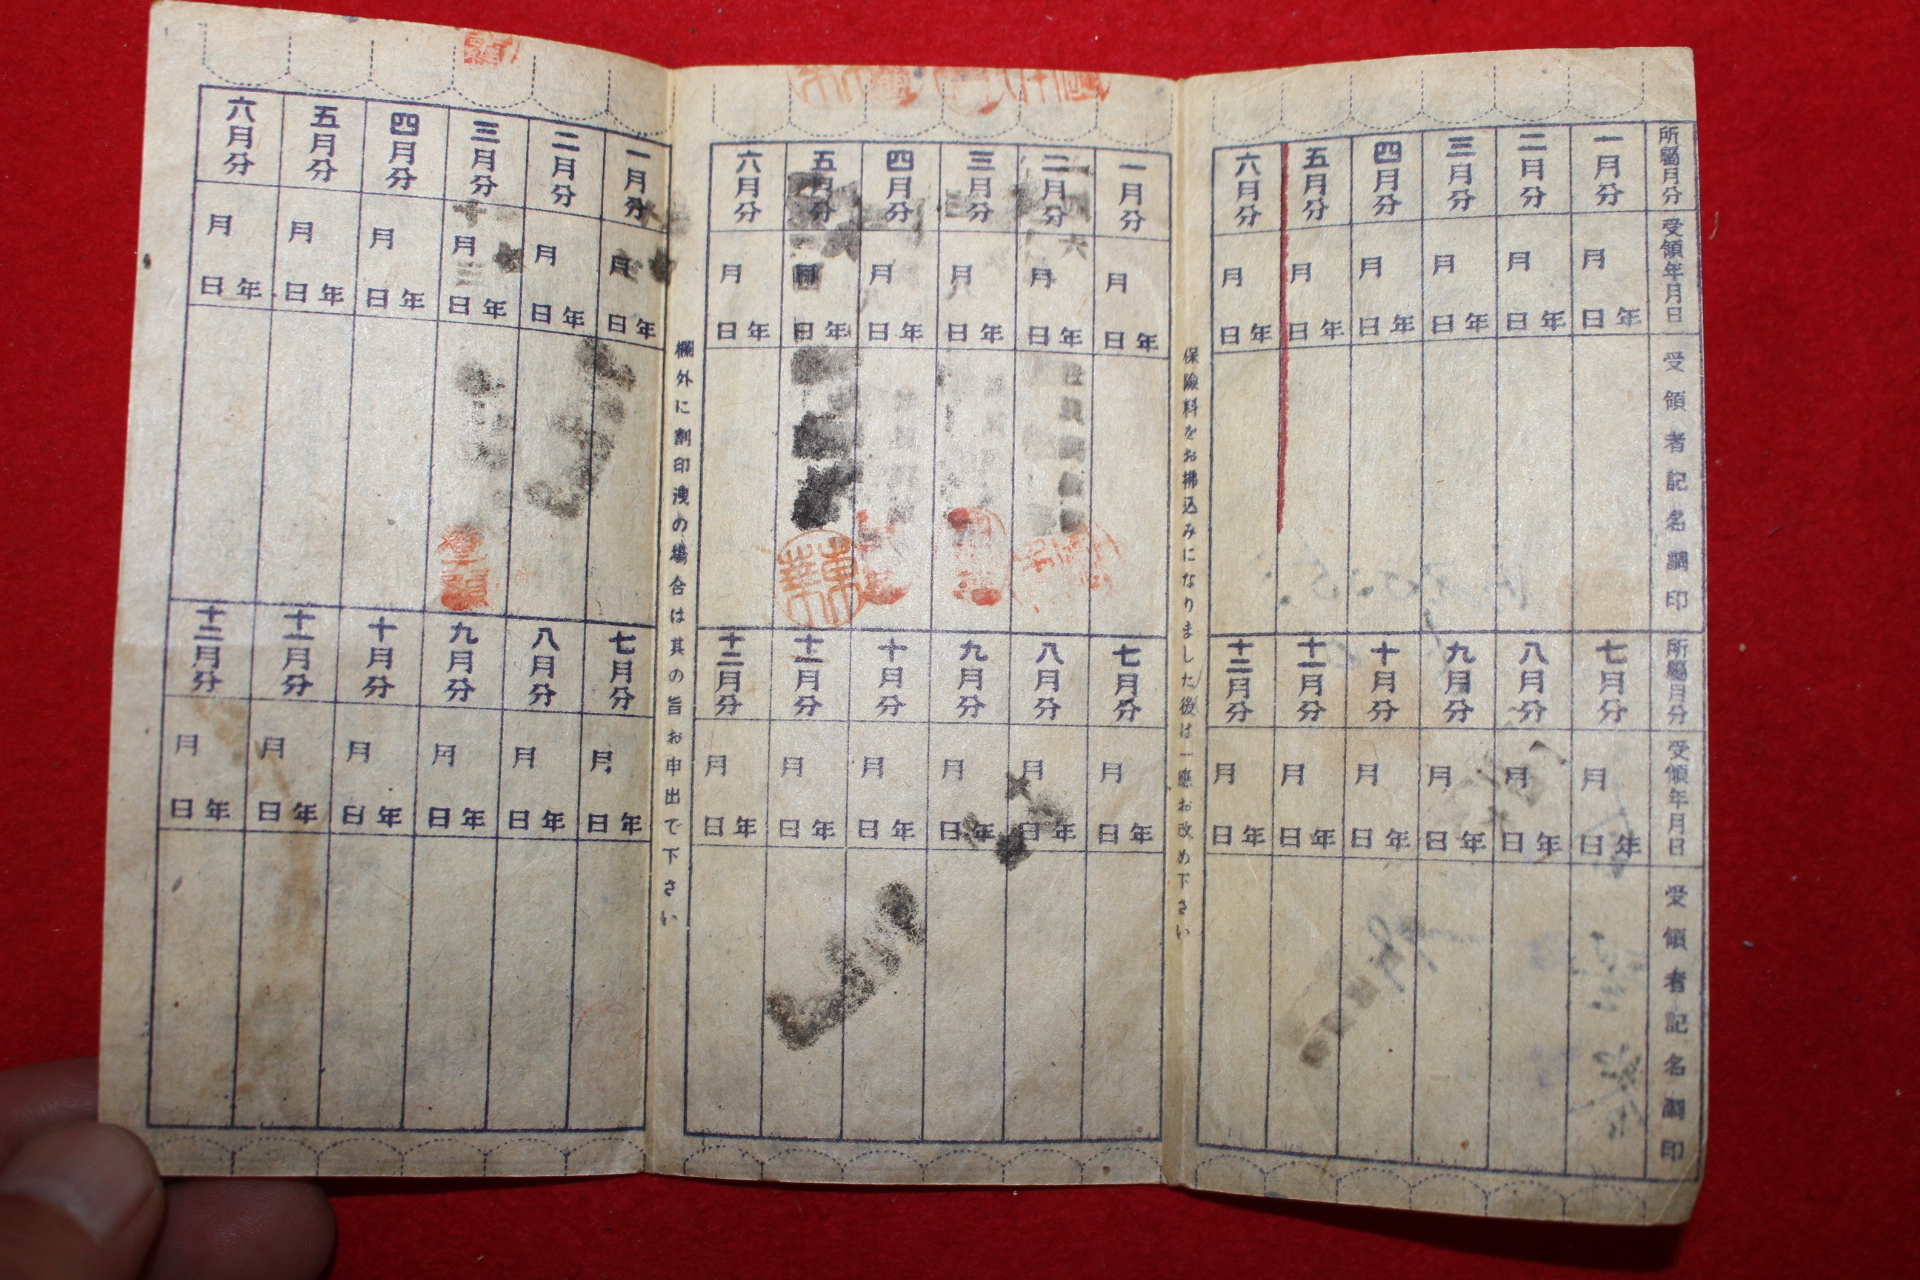 所屬月分
受領年月日
受領者記名調印
一月分
年月日
二月分
年月日
三月分
年月日
四月分
年月日
五月分
年月日
六月分
年月日
所屬月分
受領年月日
受領者記名調印
七月分
年月日
八月分
年月日
九月分
年月日
十月分
年月日
十一月分
年月日
十二月分
年月日
保險料をお拂込みになりました後は一應お改め下さい
一月分
年月日
二月分
年月日
三月分
年月日
四月分
年月日
五月分
年月日
六月分
年月日
七月分
年月日
八月分
年月日
九月分
年月日
十月分
年月日
十一月分
年月日
十二月分
年月日
欄外に割印洩の場合は其の旨お申出で下さい
一月分
年月日
二月分
年月日
三月分
年月日
四月分
年月日
五月分
年月日
六月分
年月日
七月分
年月日
八月分
年月日
九月分
年月日
十月分
年月日
十一月分
年月日
十二月分
年月日